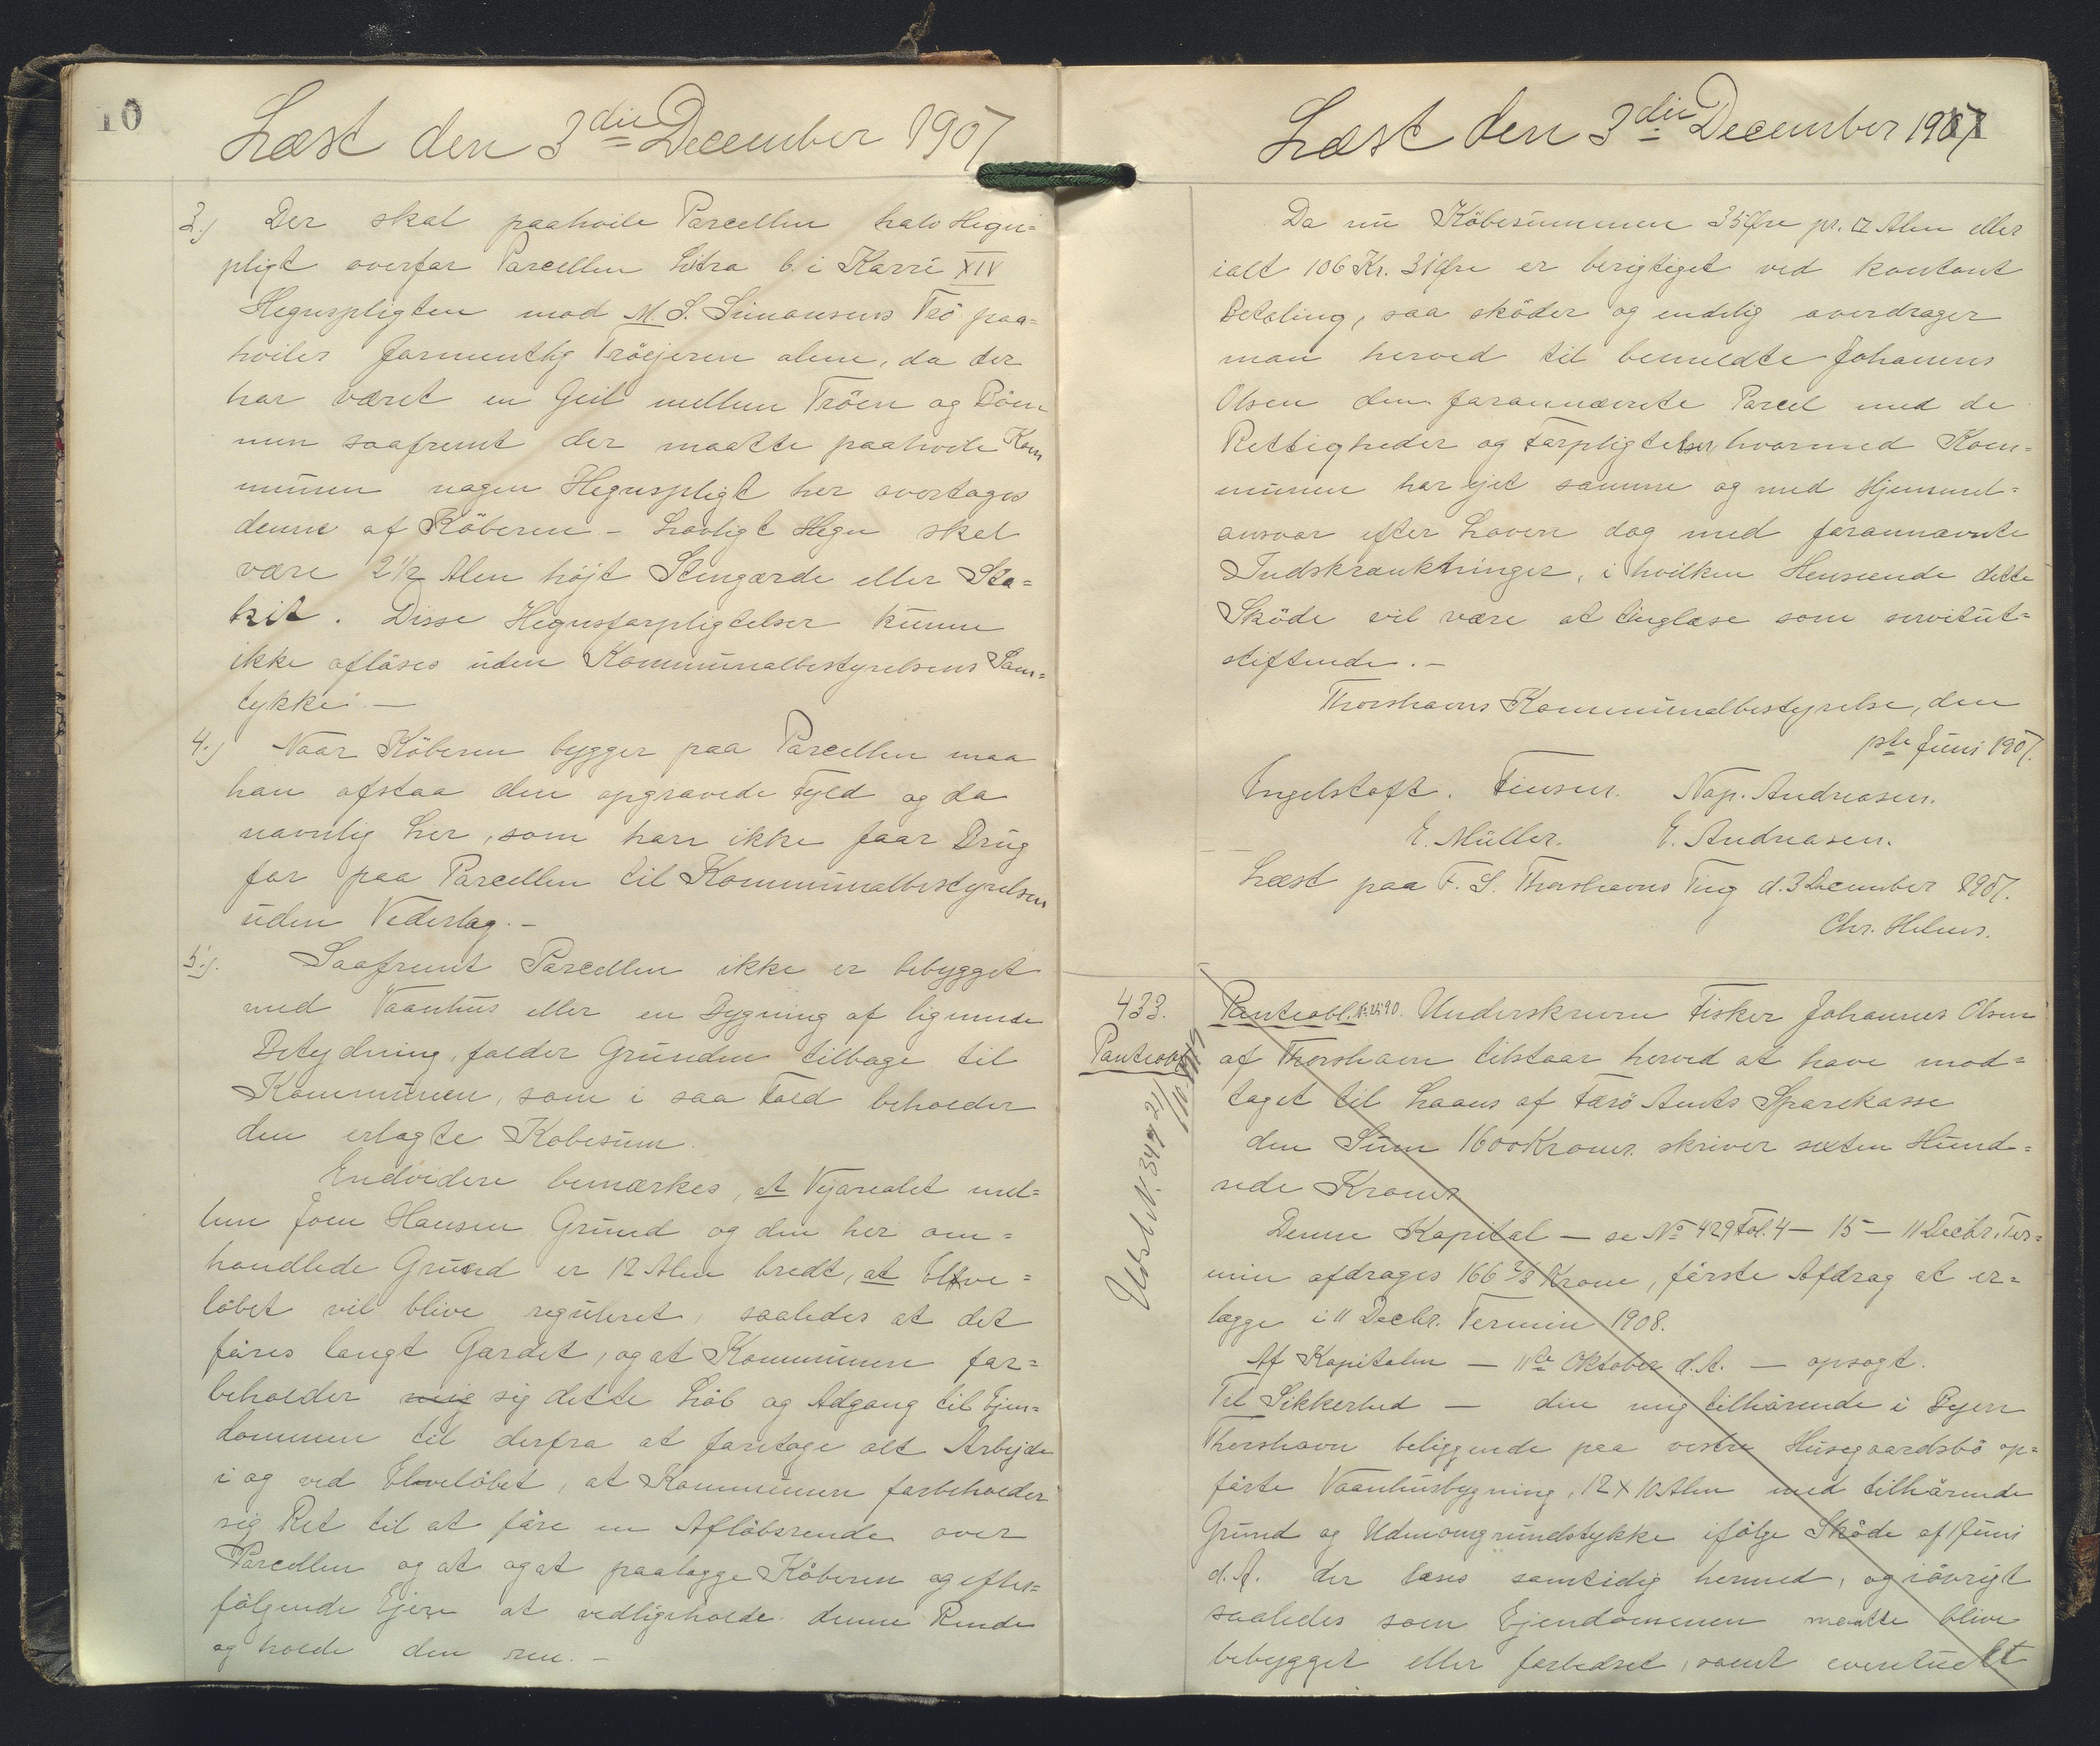 10
Læst den 3die December 1907
3.) Der skal paahvile Parcellen halv Hegns=
pligt overfor Parcellen Litra b. i Karré XIV
Hegnspligten mod M. S. Simonsens Trö paa=
hviler formentlig Tröejeren alene, da der
har været en Geil mellem Tröen og Böen
men saafremt der maatte paahvile Kom
munen nogen Hegnspligt her overtages
denne af Köberen - Lovligt Hegn skal
være 2 1/2 Alen höjt Stengærde eller Sta=
kit. Disse Hegnsforpligtelser kunne
ikke aflöses uden Kommunalbestyrelsens Sam=
tykke. —
4.) Naar Köberen bygger paa Parcellen maa
han afstaa den opgravede Fyld og da
navnlig Ler, som han ikke faar Brug
for paa Parcellen til Kommunalbestyrelsen
uden Vederlag. -
5.) Saafremt Parcellen ikke er bebygget
med Vaanhus eller en Bygning af lignende
Betydning, falder Grunden tilbage til
Kommunen, som i saa Fald beholder
den erlagte Kobesum.
Endvidere bemærkes, at Vejarealet mel=
lem Joen Hansen Grund og den her om=
handlede Grund er 12 Alen bredt, at Elve=
löbet vil blive reguleret, saaledes at det
föres langt Gærdet, og at Kommunen for=
beholder mig sig dette Löb og Adgang til Ejen=
dommen til derfra at foretage alt Arbejde
i og ved Elvelöbet, at Kommunen forbeholder
sig Ret til at före en Aflöbsrende over
Parcellen og at og at paalægge Köberen og efter=
fölgende Ejere at vedligeholde denne Rende
og holde den ren. -
11
Læst den 3die December 1907
Da nu Köbesummen 35 Øre pr. □ Alen eller
ialt 106 Kr. 31 Øre er berigtiget ved kontant
Betaling, saa sköder og endelig overdrager
man herved til bemeldte Johannes
Olsen den forannævnte Parcel med de
Rettigheder og Forpligtelser, hvormed Kom=
munen har ejet samme og med Hjemmel=
ansvar efter Loven dog med forannævnte
Indskrænkninger, i hvilken Henseende dette
Sköde vil være at tinglæse som servitut=
stiftende. -
Thorshavns Kommunalbestyrelse, den
1ste Juni 1907.
Engelstoft. Finsen. Nap. Andreasen.
E. Müller. E. Andreasen.
Læst paa F. S. Thorshavns Ting d. 3 December 1907.
Chr. Helms.
433.
Panteobl.
Udsl. N. 349 21/10
Panteobl. No 2590. Underskreven Fisker Johannes Olsen
af Thorshavn tilstaar herved at have mod=
taget til Laans af Færö Amts Sparekasse
den Sum 1600 Kroner skriver sexten Hund=
rede Kroner.
Denne Kapital — se No 429 Fol. 4 — 15 — 11 Decbr. Ter=
min afdrages 166 2/3 Krone, förste Afdrag at er=
lægge i 11 Decbr. Termin 1908.
Af Kapitalen — 11te Oktober d.A. — opsagt.
Til Sikkerhed — den mig tilhörende i Byen
Thorshavn beliggende paa vestre Husegaardsbö op=
förte Vaanhusbygning, 12 x 10 Alen med tilhörende
Grund og Udmomgrundstykke ifölge Sköde af 1 Juni
d. A. der læses samtidig hermed, og iövrigt
saaledes som Ejendommen maatte blive
bebygget eller forbedret, samt eventuelt